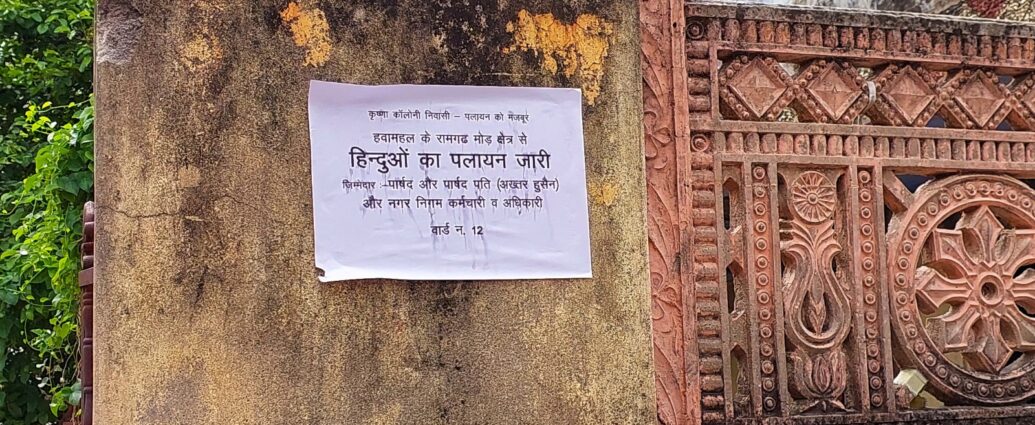 कृष्णा कॉलोनी निवासी – पलायन को मजबूर
हवामहल के रामगढ मोड़ क्षेत्र से
हिन्दुओं का पलायन जारी
जिम्मेदार :–पार्षद और पार्षद पति (अख्तर हुसैन)
और नगर निगम कर्मचारी व अधिकारी
वार्ड न. 12